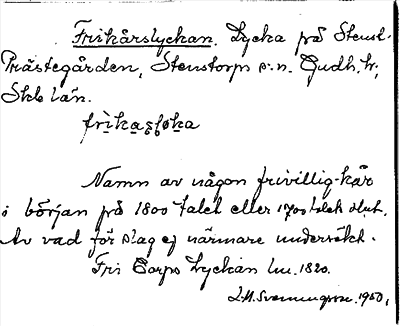 Frikårslyckan. Lycka på Stenst.
Prästegården, Stenstorps s:n. Gudh. hr,
Skb län.
Namn av någon frivillig-kår
i början på 1800 talet eller 1700talets slut.
Av vad för slag ej närmare undersökt.
Fri Corps Lyckan lm. 1820.
1950.